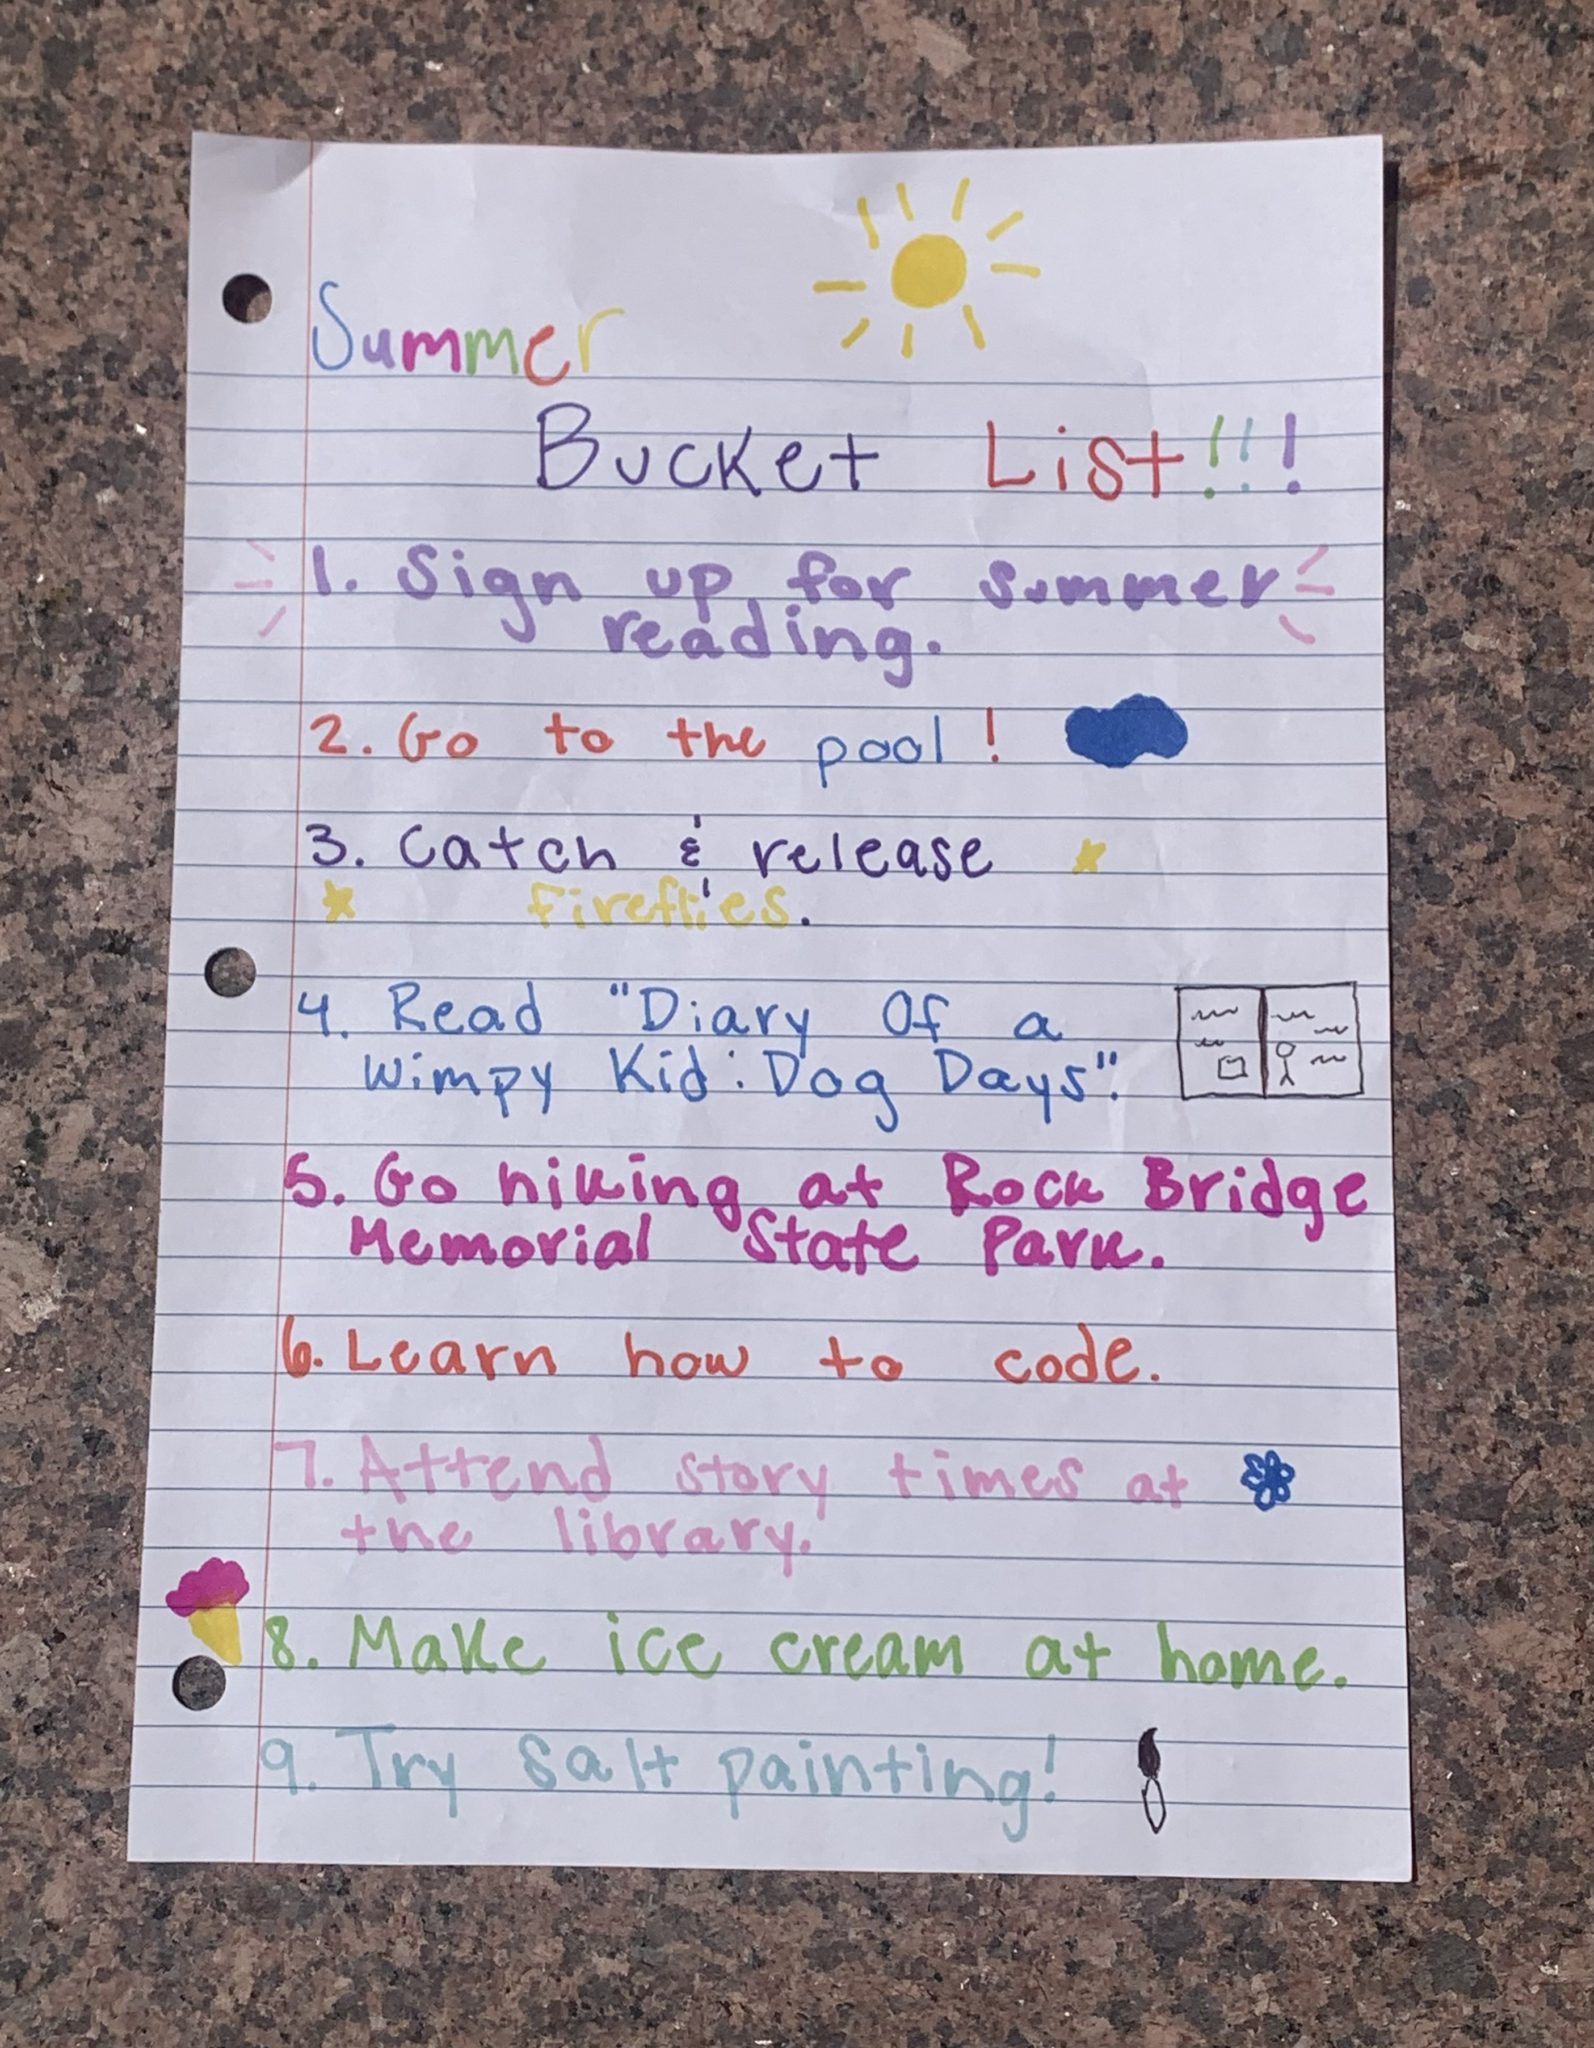 Summer
Bucket List!!!
1. Sign up for summer
reading.
2. Go to the pool!
3. Catch & release
fireflies.
4. Read "Diary Of a
Wimpy Kid: Dog Days".
5. Go hiking at Rock Bridge
Memorial State Park.
6. Learn how to code.
7. Attend story times at
the library.
8. Make ice cream at home.
9. Try salt painting!